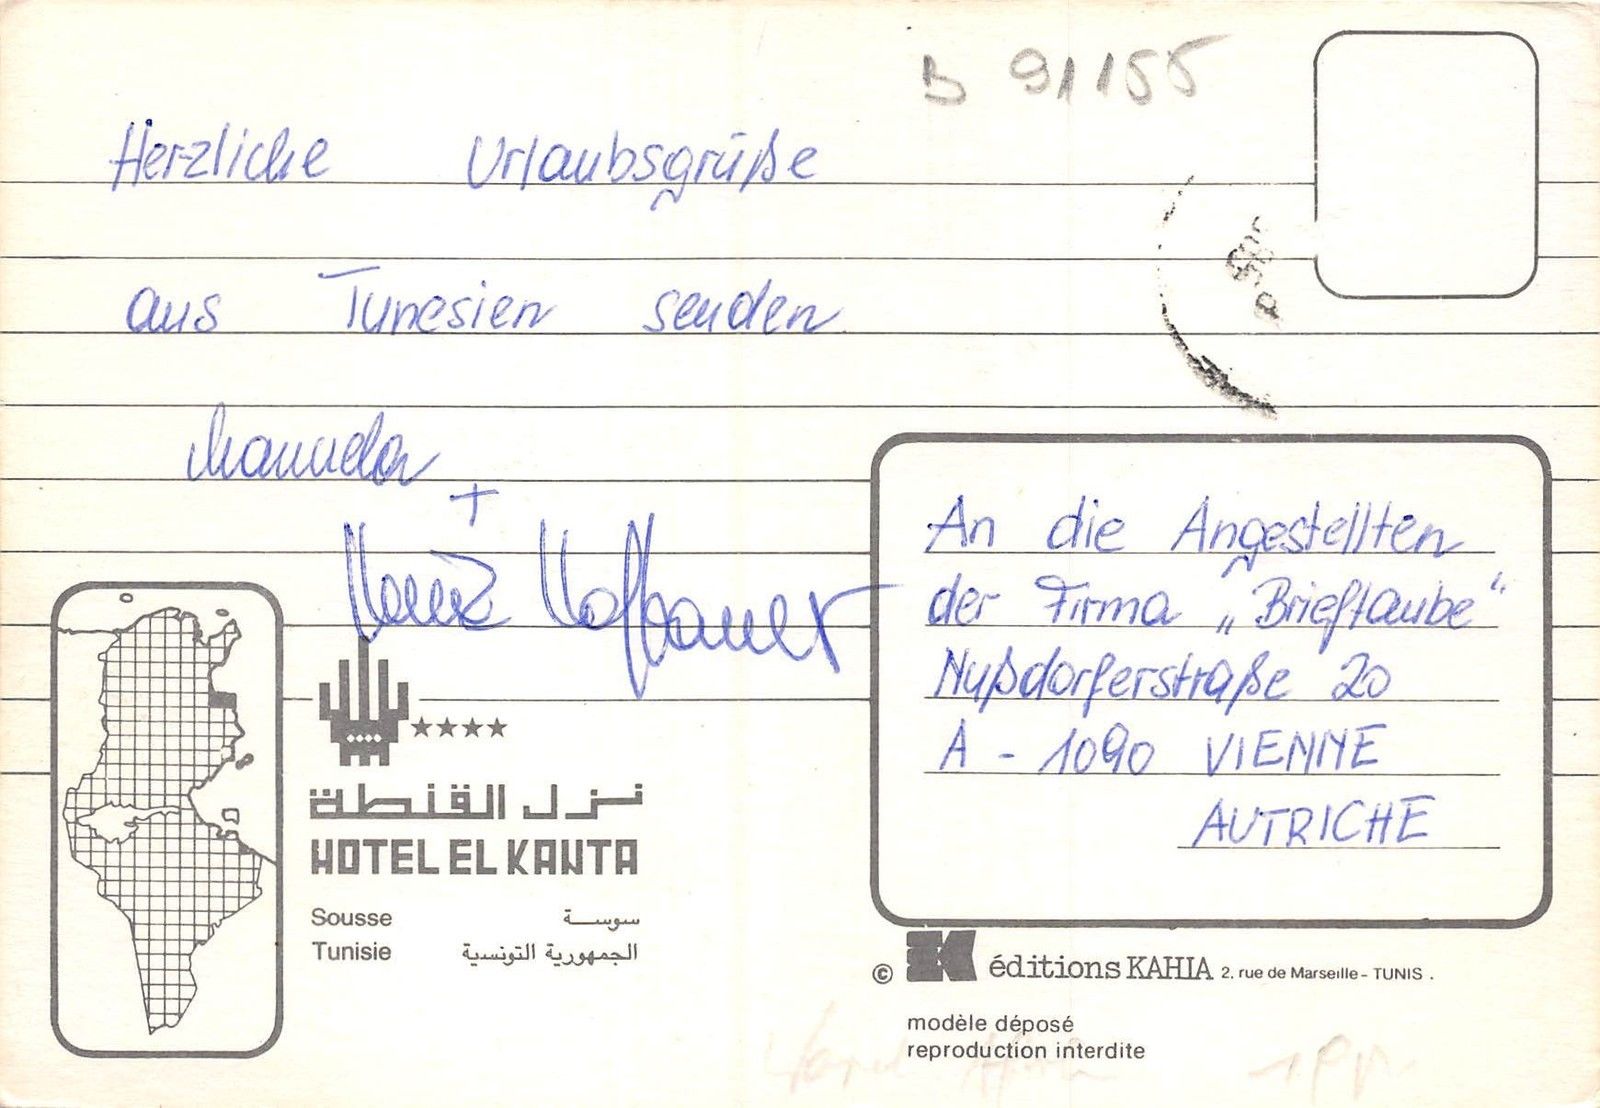 B 91155
Herzliche Urlaubsgrüße
aus Tunesien senden
Manuela
+
An die Angestellten
der Firma „Brieftaube“
Nußdorferstraße 20
A - 1090 VIENNE
AUTRICHE
نزل القنطة
HOTEL EL KANTA
Sousse سوسة
Tunisie الجمهورية التونسية
© éditions KAHIA 2, rue de Marseille - TUNIS .
modèle déposé
reproduction interdite